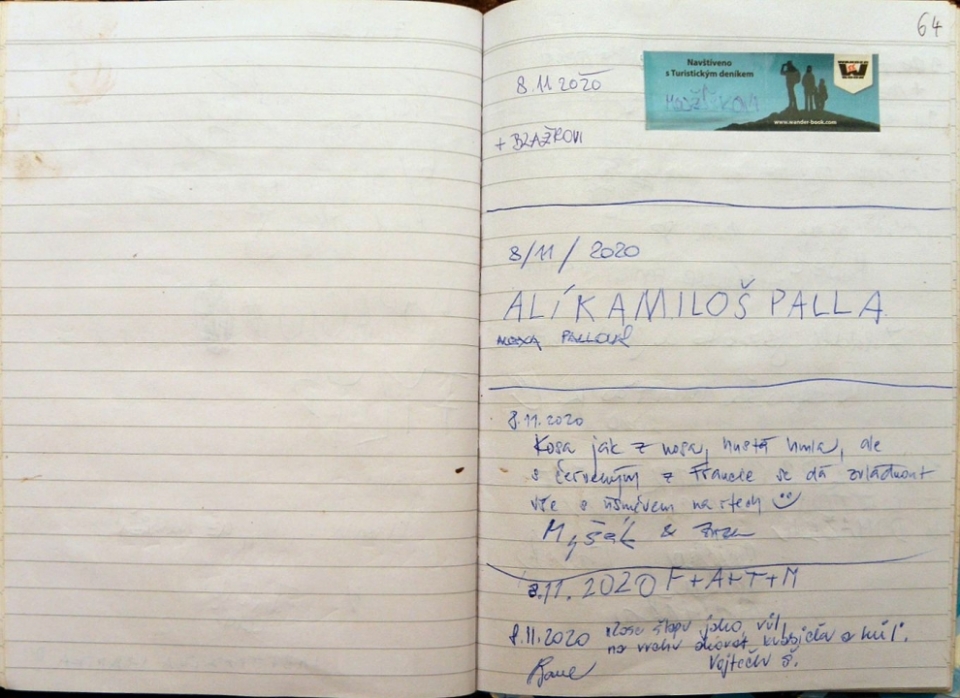 64
8.11 2020
Navštíveno
s Turistickým deníkem
www.wander-book.com
+ BLAŽKOVI
8/11/2020
ALÍK A MILOŠ PALLA
PALLOVÁ
8.11.2020
Kosa jak z nosa, hustá hmla, ale
s červeným z Francie se dá zvládnout
vše s úsměvem na rtech
Myšák &
8.11.2020 F+A+T+M
8.11.2020 šlapu jako vůl,
na vrchu a hůl.
Vojtěch Š.